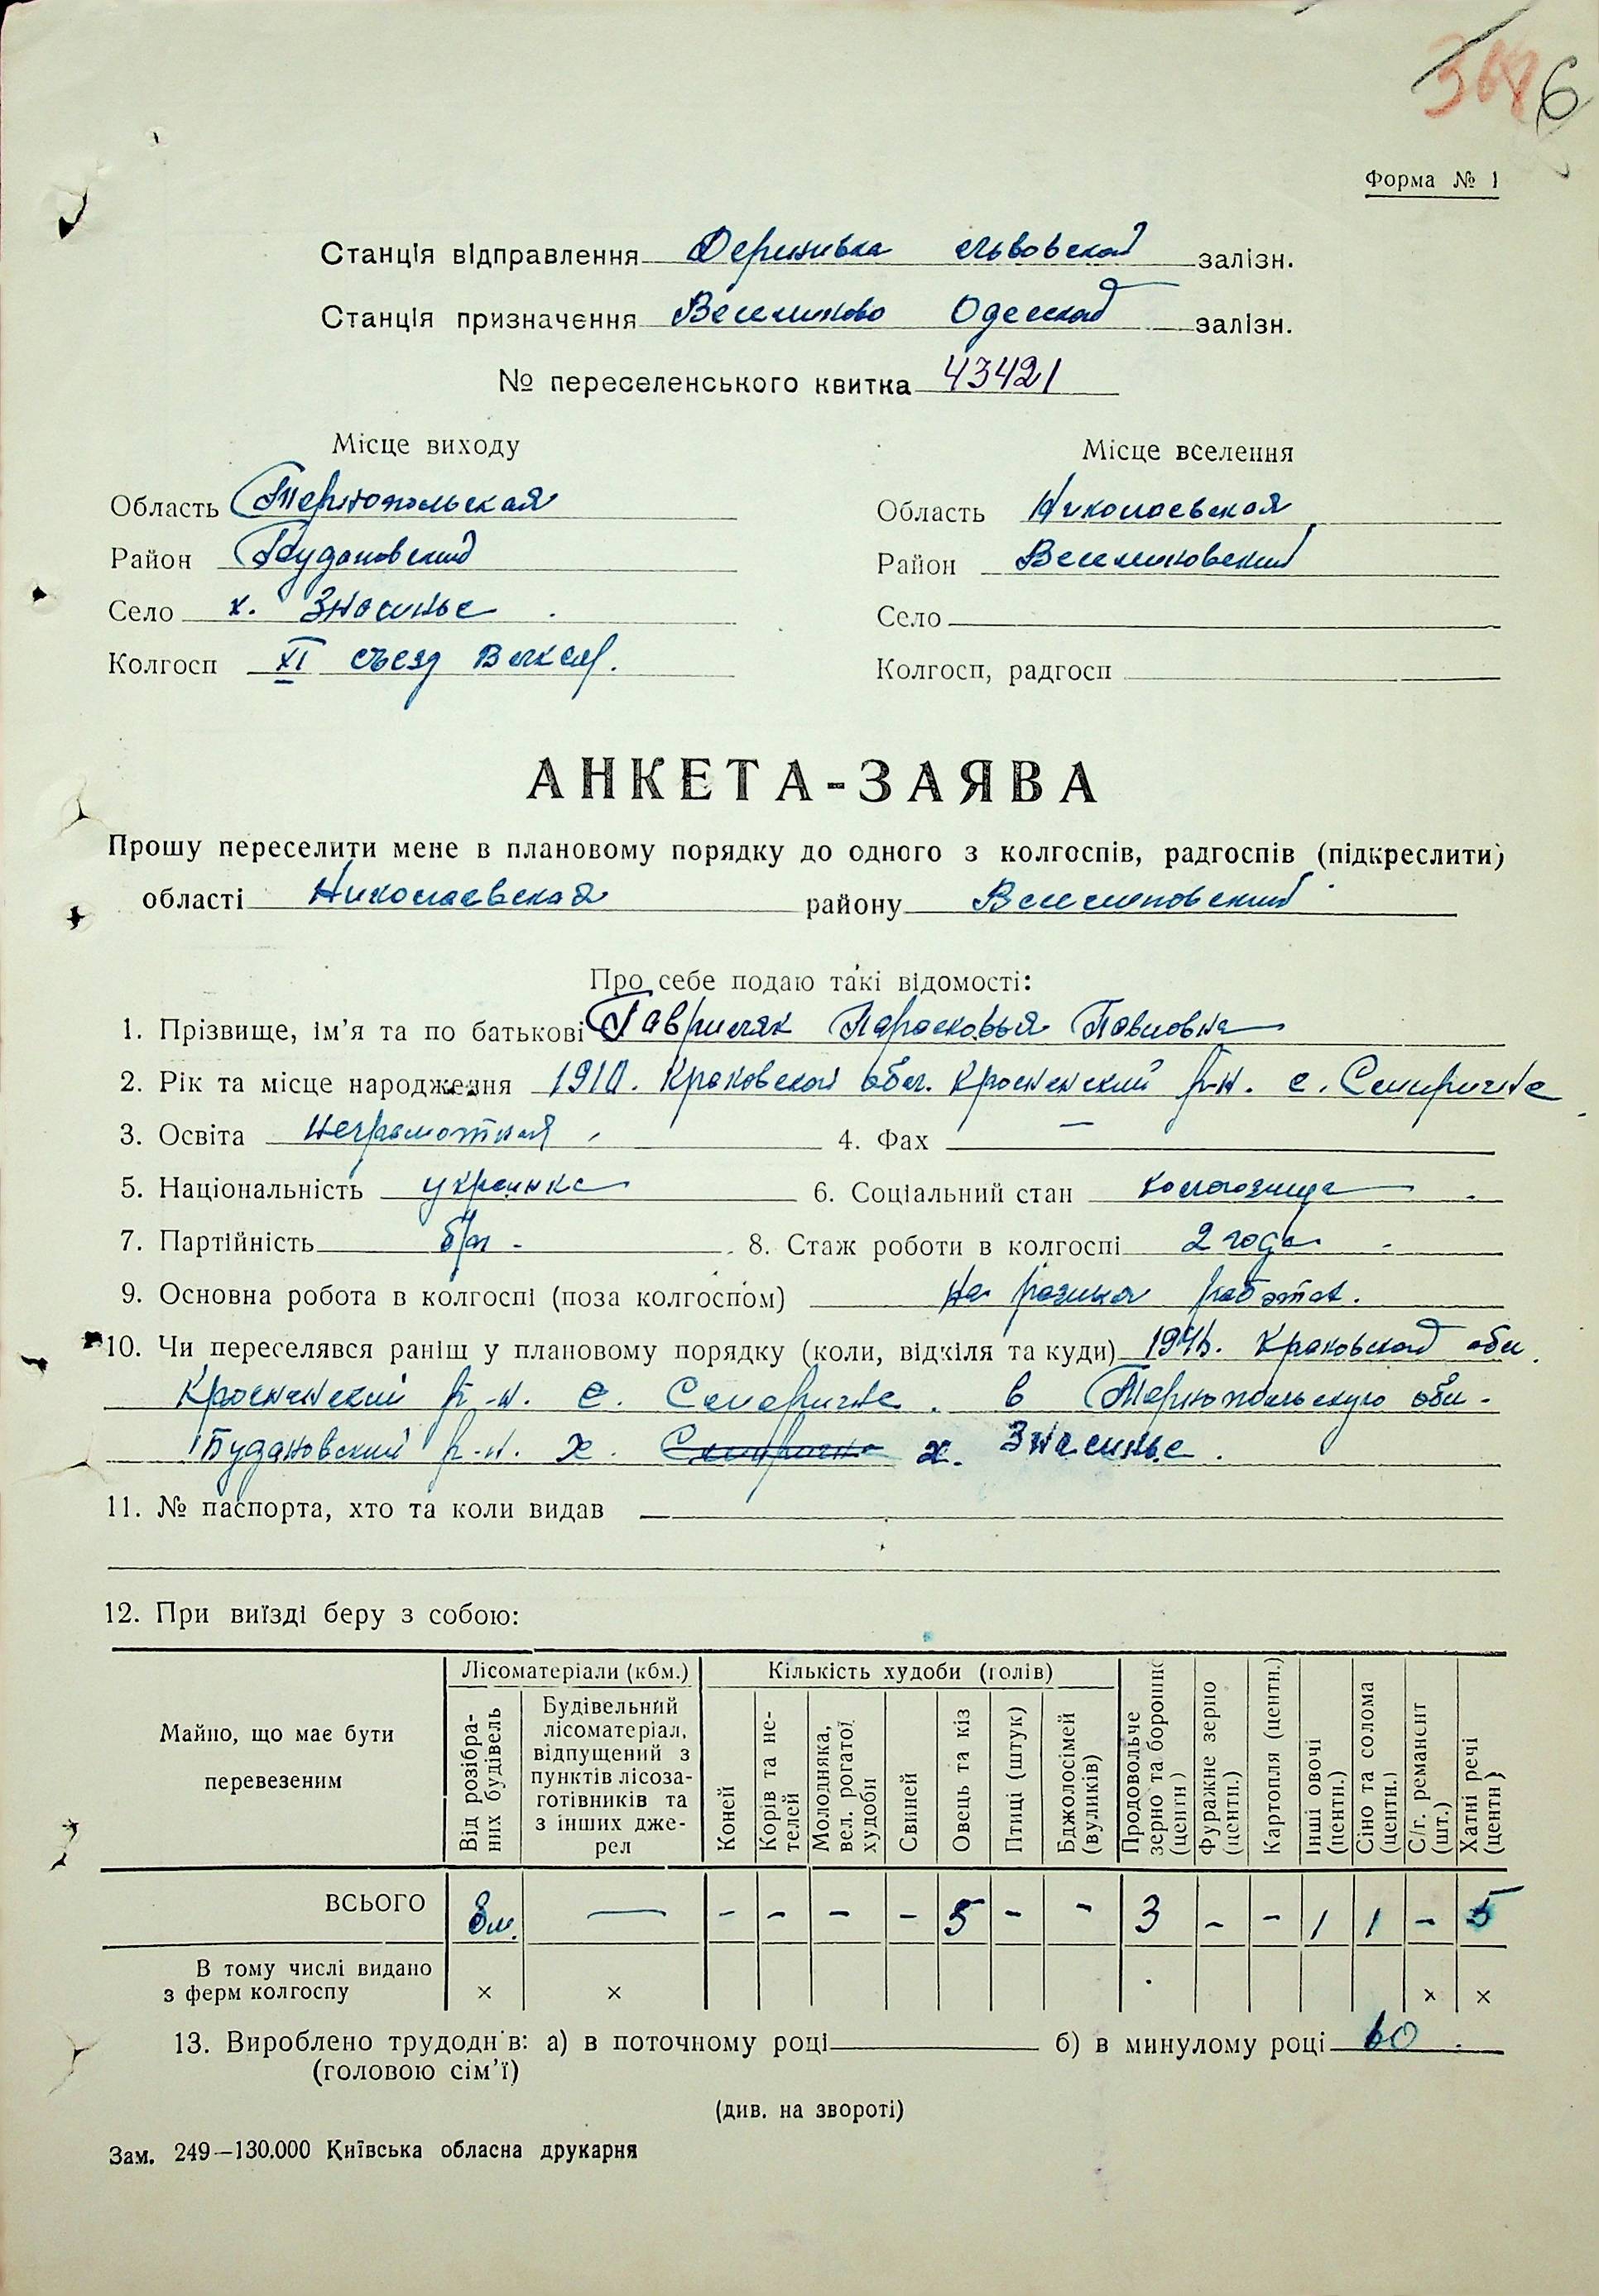 6
Форма № 1
Станція відправлення Деренивка Львовской залізн.
Станція призначення Веселиново Одесской залізн.
№ переселенського квитка 43421
Місце виходу Місце вселення
Область Тернопольская Область Николаевская
Район Будановский Район Веселиновский
Село х. Зносинье Село
Колгосп XI съезд Влксм. Колгосп, радгосп
АНКЕТА-ЗАЯВА
Прошу переселити мене в плановому порядку до одного з колгоспів, радгоспів (підкреслити)
області Николаевская району Веселиновский
Про себе подаю такі відомості:
1. Прізвище, ім'я та по батькові Гавриляк Парасковья Павловна
2. Рік та місце народження 1910. Краковской обл. Кросненский р-н. с.
3. Освіта неграмотная 4. Фах —
5. Національність украинка 6. Соціальний стан колхозница
7. Партійність б/п - 8. Стаж роботи в колгоспі 2 года
9. Основна робота в колгоспі (поза колгоспом) На разных работах.
10. Чи переселявся раніш у плановому порядку (коли, відкіля та куди) Краковской обл.
Кросненский р-н. с. в Тернопольскую обл.
Будановский р-н. х. х. Зносинье.
11. № паспорта, хто та коли видав
12. При виїзді беру з собою:
Майно, що має бути перевезеним
Лісоматеріали (кбм.) Кількість худоби (голів)
Від розібраних будівель
Будівельний лісоматеріал, відпущений з пунктів лісозаготівників та з інших джерел
Коней
Корів та нетелей
Молодняка, вел. рогатої худоби
Свиней
Овець та кіз
Птиці (штук)
Бджолосімей (вуликів)
Продовольче зерно та борошно (центн)
Фуражне зерно (центн.)
Картопля (центн.)
Інші овочі (центн.)
Сіно та солома (центн.)
С/г. реманент (шт.)
Хатні речі (центн)
ВСЬОГО 8м. — - - - - 5 - - 3 - - 1 1 - 5
В тому числі видано
з ферм колгоспу × × × ×
13. Вироблено трудоднів: а) в поточному році б) в минулому році 60
(головою сім'ї)
(див. на звороті)
Зам. 249—130.000 Київська обласна друкарня